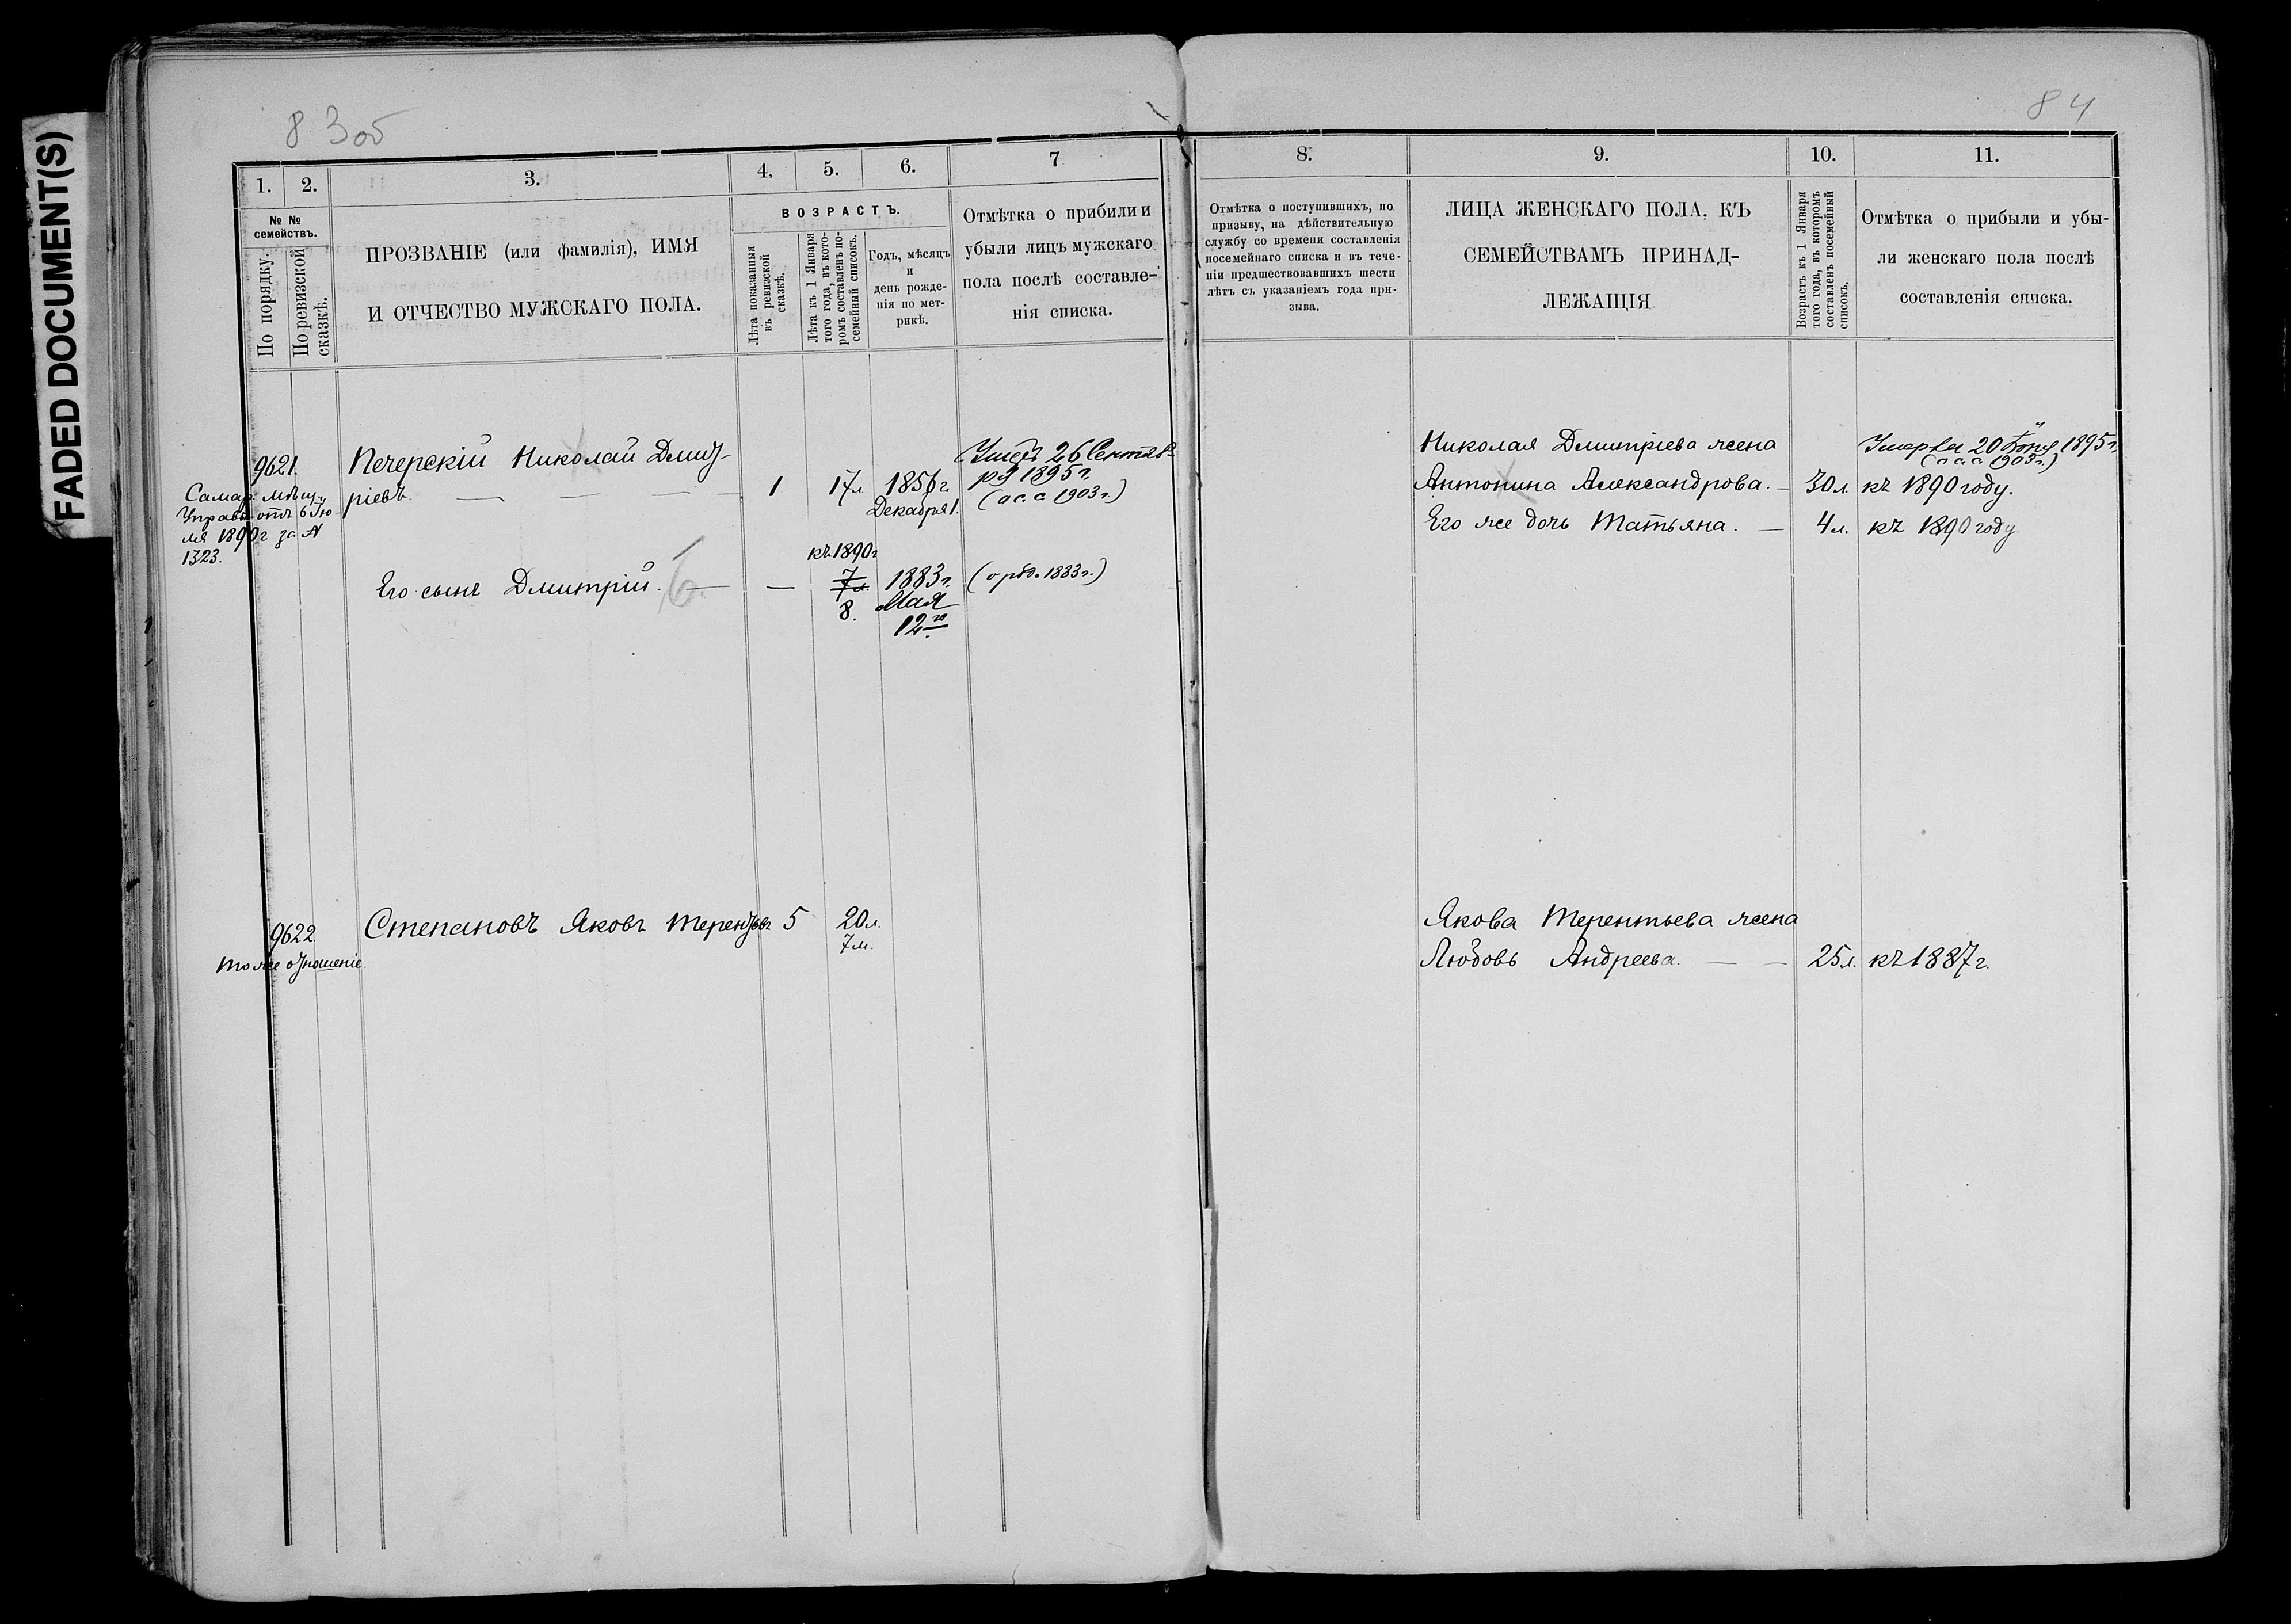 FADED DOCUMENT(S)
83об
84
1.
2.
3.
4.
5.
6.
7
№ №
семействъ.
По порядку.
По ревизской
сказкѣ.
ПРОЗВАНІЕ (или фамилія), ИМЯ
И ОТЧЕСТВО МУЖСКАГО ПОЛА.
ВОЗРАСТЪ.
Лѣта показанныя
въ ревизской
сказкѣ.
Лѣта къ 1 Января
того года, въ кото-
ромъ составленъ по-
семейный списокъ.
Годъ, мѣсяцъ
и
день рожде-
нія по мет-
рикѣ.
Отмѣтка о прибили и
убыли лицъ мужскаго
пола послѣ составле-
нія списка.
9621.
Самар. мѣщ.
Управы отъ 6 Ію
ля 1890 г за №
1323.
Печерскій Николай Дмит-
ріевъ.
1
17 л
1856 г.
Декабря 1.
26 Сентяб
ря 1895 г.
1903 г.)
Его сынъ Дмитрій.
къ 1890 г
7 л.
8.
1883 г.
Мая
12го
1883 г.)
9622.
то же отношеніе.
Степановъ Яковъ Терентьевъ
5
20 л.
7 м.
8.
9.
10.
11.
Отмѣтка о поступившихъ, по
призыву, на дѣйствительную
службу со времени составленія
посемейнаго списка и въ тече-
ніи предшествовавшихъ шести
лѣтъ съ указаніемъ года при-
зыва.
ЛИЦА ЖЕНСКАГО ПОЛА, КЪ
СЕМЕЙСТВАМЪ ПРИНАД-
ЛЕЖАЩІЯ
Возрастъ къ 1 Января
того года, въ которомъ
составленъ посемейный
списокъ.
Отмѣтка о прибыли и убы-
ли женскаго пола послѣ
составленія списка.
Николая Дмитріева жена
Антонина Александрова.
30 л.
Умерла 20 1895 г.
1903 г.)
къ 1890 году.
Его же дочь Татьяна.
4 л.
къ 1890 году
Якова Терентьева жена
Любовь Андреева.
25 л.
къ 1887 г.